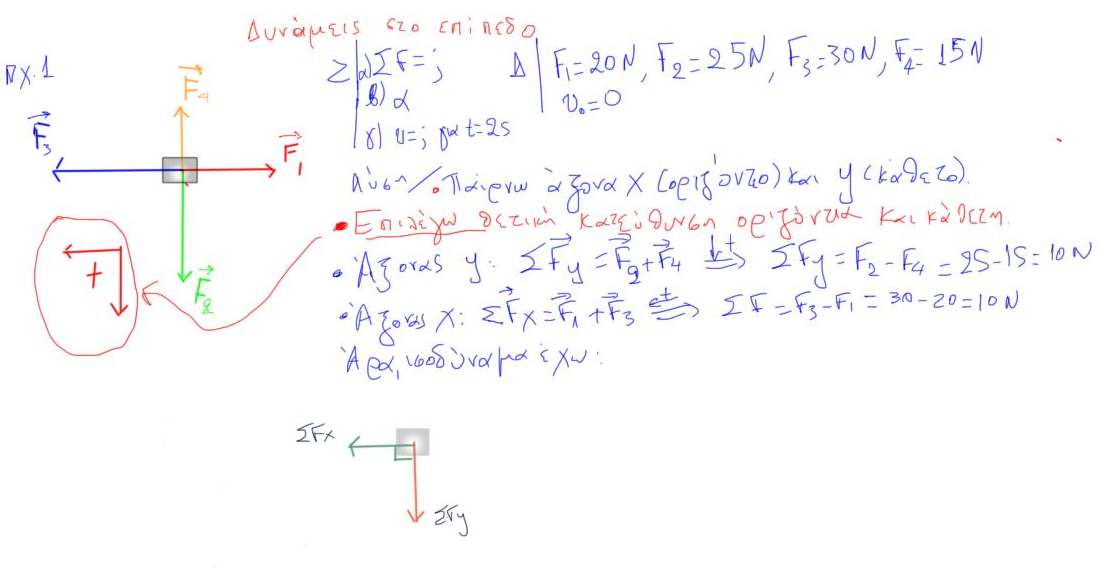 Δυνάμεις στο επίπεδο
πχ.1
Ζ | α) ΣF=;
β) α
γ) υ=; για t=2s
Δ | F₁=20N, F₂=25N, F₃=30N, F₄=15N
υ₀=0
F⃗₄
F⃗₃
F⃗₁
F⃗₂
+
Λύση/ • Παίρνω άξονα x (οριζόντιο) και y (κάθετο).
• Επιλέγω θετική κατεύθυνση οριζόντια και κάθετη.
• Άξονας y: ΣF⃗y = F⃗₂+F⃗₄ ⇒ ↓+ ΣFy = F₂-F₄ = 25-15=10N
• Άξονας x: ΣF⃗x=F⃗₁+F⃗₃ ⇒ ←+ ΣF=F₃-F₁= 30-20=10N
Άρα, ισοδύναμα έχω:
ΣFx
ΣFy